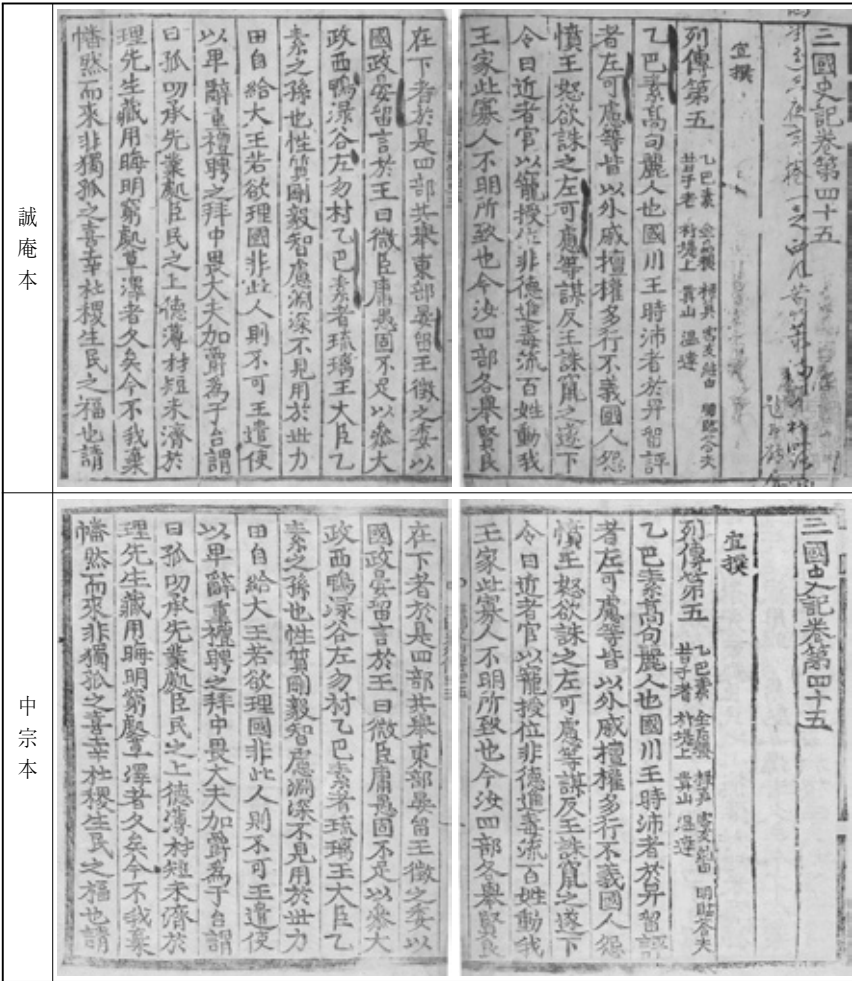 誠庵本
三國史記卷第四十五
宜撰
列傳第五 乙巴素 金后稷 祿真 密友 紐由 明臨荅夫
昔于老 朴堤上 貴山 溫達
乙巴素髙句麗人也國川王時沛者於畀留評
者左可慮等皆以外戚擅權多行不義國人怨
憤王怒欲誅之左可慮等謀反王誅竄之遂下
令曰近者官以寵授位非德進毒流百姓動我
王家此寡人不明所致也今汝四部各舉賢良
在下者於是四部共舉東部晏留王徵之委以
國政晏留言於王曰微臣庸愚固不足以叅大
政西鴨淥谷左勿村乙巴素者琉璃王大臣乙
素之孫也性質剛毅智慮淵深不見用於世力
田自給大王若欲理國非此人則不可王遣使
以卑辭重禮聘之拜中畏大夫加爵為于台謂
曰孤叨承先業處臣民之上德薄材短未濟於
理先生藏用晦明窮處草澤者久矣今不我棄
幡然而來非獨孤之喜幸社稷生民之福也請
中宗本
三國史記卷第四十五
宜撰
列傳第五 乙巴素 金后稷 祿真 密友 紐由 明臨荅夫
昔于老 朴堤上 貴山 溫達
乙巴素髙句麗人也國川王時沛者於畀留評
者左可慮等皆以外戚擅權多行不義國人怨
憤王怒欲誅之左可慮等謀反王誅竄之遂下
令曰近者官以寵授位非德進毒流百姓動我
王家此寡人不明所致也今汝四部各舉賢良
在下者於是四部共舉東部晏留王徵之委以
國政晏留言於王曰微臣庸愚固不足以叅大
政西鴨淥谷左勿村乙巴素者琉璃王大臣乙
素之孫也性質剛毅智慮淵深不見用於世力
田自給大王若欲理國非此人則不可王遣使
以卑辭重禮聘之拜中畏大夫加爵為于台謂
曰孤叨承先業處臣民之上德薄材短未濟於
理先生藏用晦明窮處草澤者久矣今不我棄
幡然而來非獨孤之喜幸社稷生民之福也請